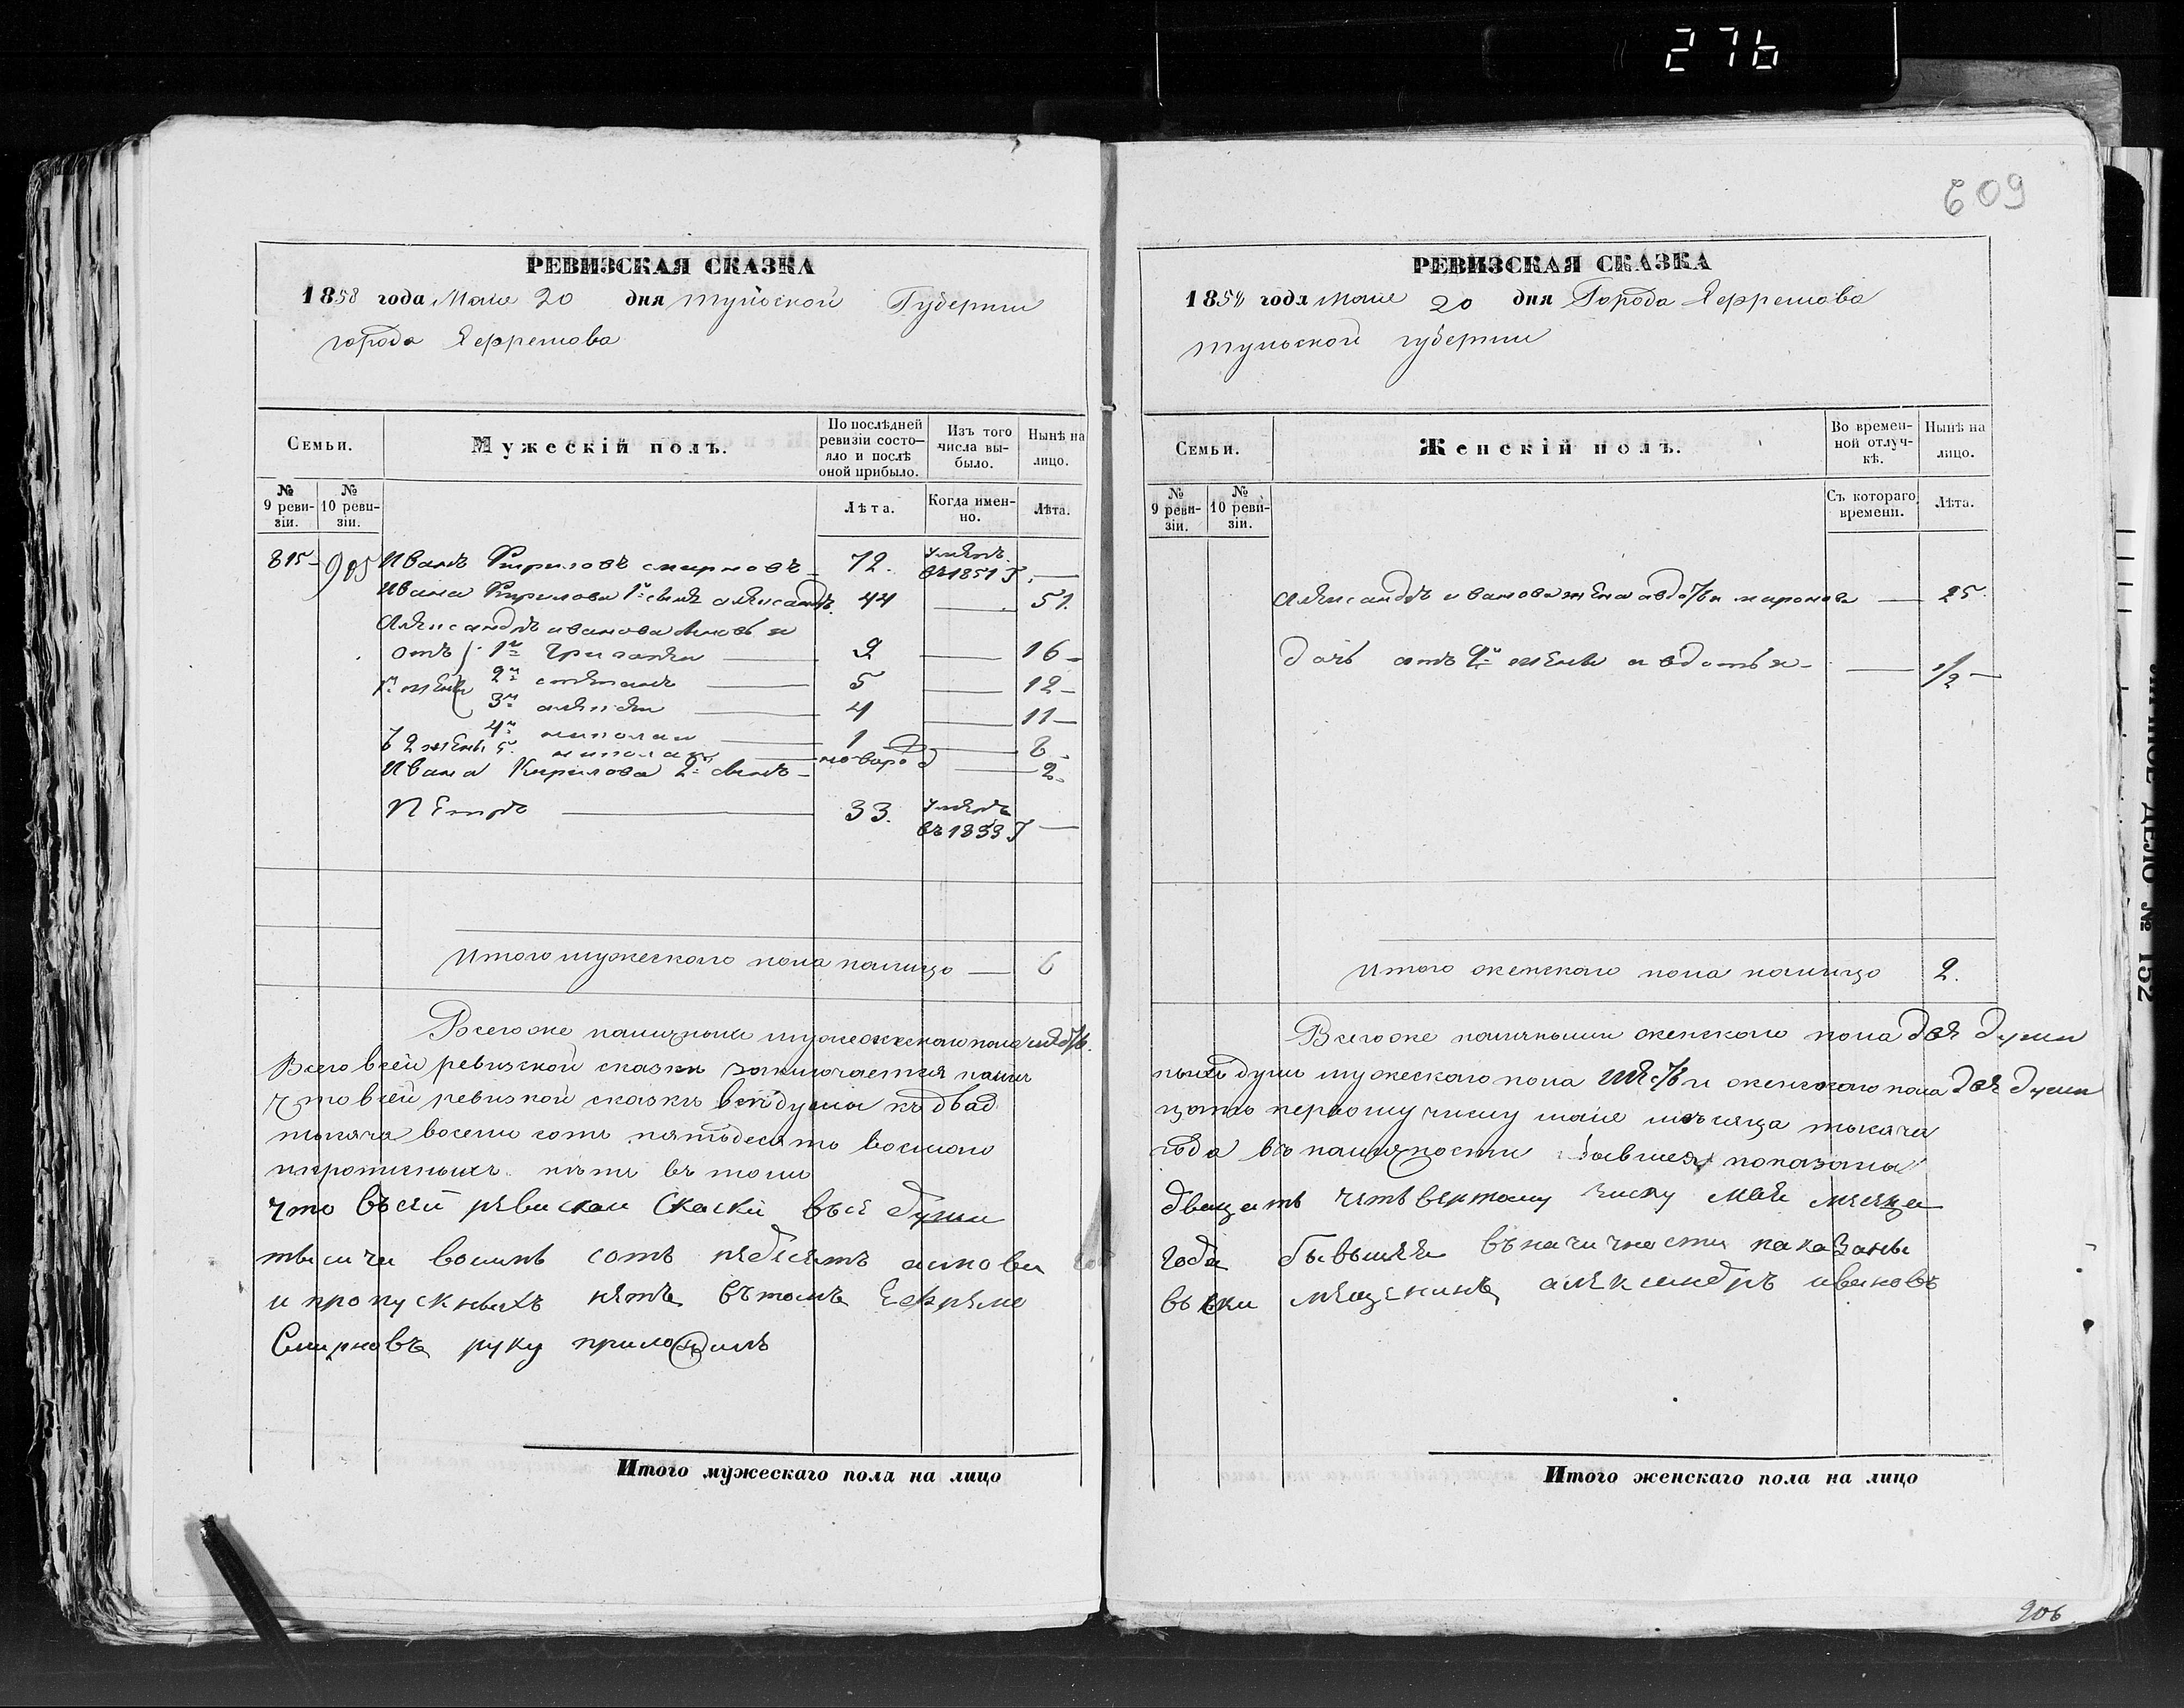 276
609
РЕВИЗСКАЯ СКАЗКА
1858 года Маiя 20 дня Тульской Губернiи
города Ефремова
Семьи.
Мужескiй полъ.
По послѣдней ревизiи состояло и послѣ оной прибыло.
Изъ того числа выбыло.
Нынѣ на лицо.
№ 9 ревизiи.
№ 10 ревизiи.
Лѣта.
Когда именно.
Лѣта.
815 905 Иванъ Кириловъ смирновъ 72. умеръ въ 1851 г. —
Ивана Кирилова 1й сынъ александръ 44 — 51.
Александръ иванова сыновья
отъ 1й Григорей — 9 — 16
1й жены 2й степанъ — 5 — 12
3й алексей — 4 — 11
4й николай — 1 — 8
2 жены 5. николай — новород — 2
Ивана Кирилова 2й сынъ
Петръ — 33. умеръ въ 1853 г —
Итого мужескаго пола налицо — 6
Всегоже наличныхъ мужескаго пола шесть.
Всего всей ревизской сказки заключается налич
что всей ревизкой сказкѣ всѣ души къ двад
тысяча восемь сотъ пятьдесятъ восмаго
и пропускныхъ нѣтъ въ томъ
что въсей ревискаи Скаски въсе души
тысичи восимъ сотъ педесятъ асмова
и пропускныхъ нетъ въ томъ Ефремо
Смирновъ руку приложилъ
Итого мужескаго пола на лицо
РЕВИЗСКАЯ СКАЗКА
1858 года Маiя 20 дня Города Ефремова
Тульской губернiи
Семьи.
Женскiй полъ.
Во временной отлучкѣ.
Нынѣ на лицо.
№ 9 ревизiи.
№ 10 ревизiи.
Съ котораго времени.
Лѣта.
Александръ иванова жена авдотья миронова — 25
дочь отъ 2й жены авдотья — 1/2
Итого женскаго пола налицо 2.
Всегоже наличными женскаго пола две души
ныхъ душъ мужескаго пола шесть и женскаго пола две души
цать первому числу маiя мѣсяца тысяча
года въ наличности бывшея показаны
двацать четьвертому числу мая месяца
года бывшея въналичности паказаны
въски мещенинъ александръ ивановъ
Итого женскаго пола на лицо
206
ДѢЛО № 152